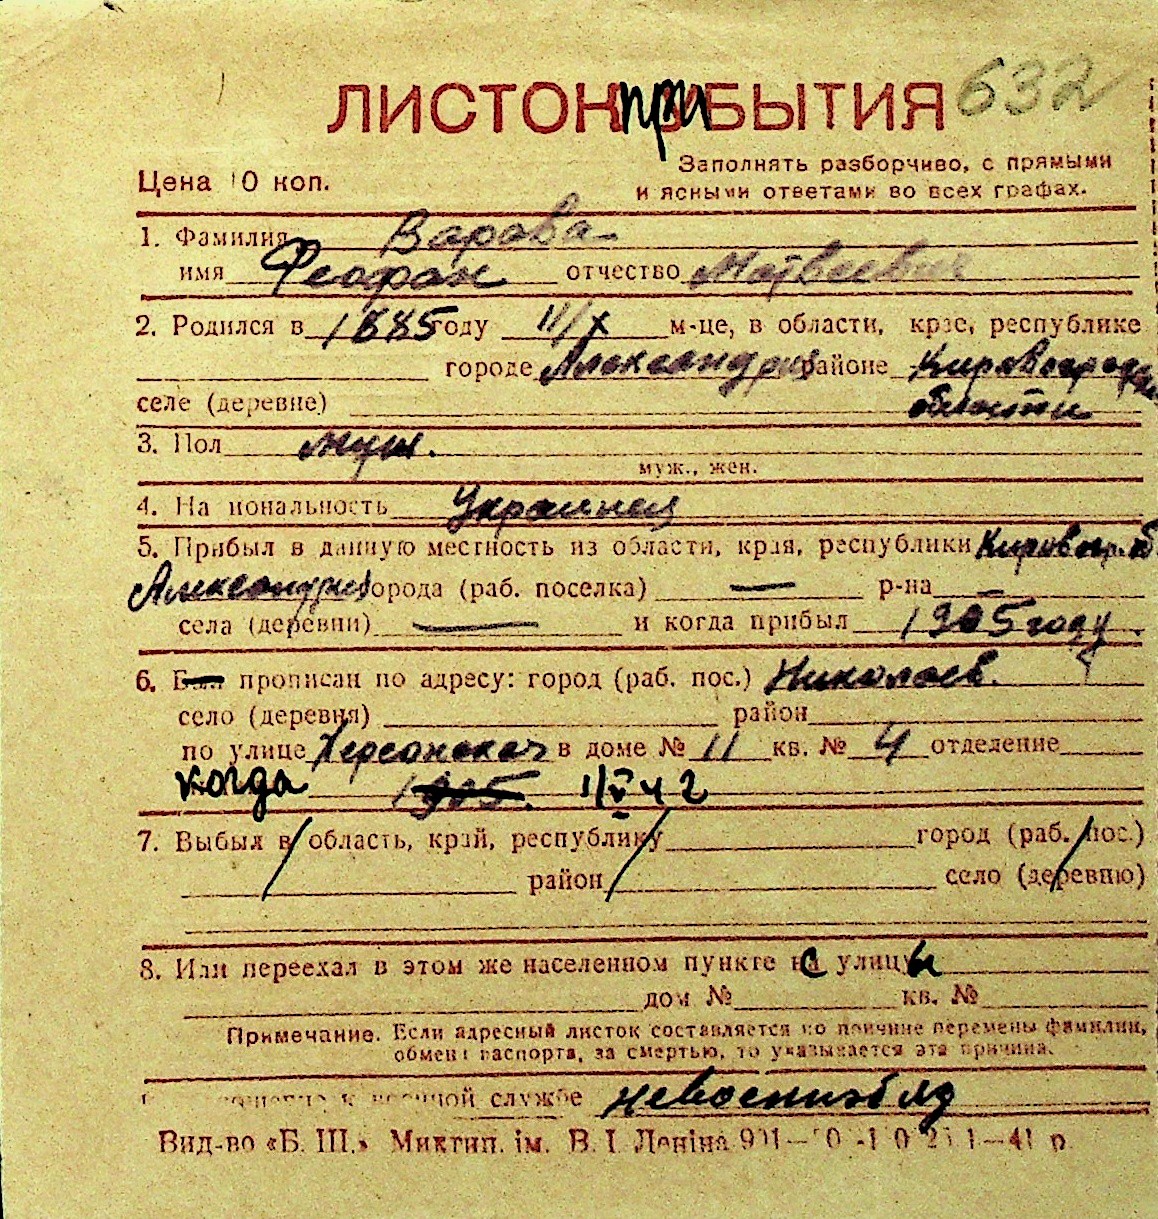 ЛИСТОК ПРИБЫТИЯ 632
Цена 10 коп.
Заполнять разборчиво, с прямыми
и ясными ответами во всех графах.
1. Фамилия Варова
имя Феофан отчество Матвеевич
2. Родился в 1885 году 11/X м-це, в области, крае, республике
городе Александрия районе Кировоградская
селе (деревне) области
3. Пол муж.
муж., жен.
4. Национальность Украинец
5. Прибыл в данную местность из области, края, республики Кировогр. об
Александрия города (раб. поселка) — р-на —
села (деревни) — и когда прибыл 1905 году.
6. Был прописан по адресу: город (раб. пос.) Николаев.
село (деревня) район
по улице Херсонская в доме № 11 кв. № 4 отделение
когда 1905. 1/V 42
7. Выбыл в область, край, республику город (раб. пос.)
район село (деревню)
8. Или переехал в этом же населенном пункте с улицы
дом № кв. №
Примечание. Если адресный листок составляется по причине перемены фамилии,
обмена паспорта, за смертью, то указывается эта причина.
военной службе невоеннообяз
Вид-во «Б. Ш.» Миктип. ім. В. І. Леніна 41 р.